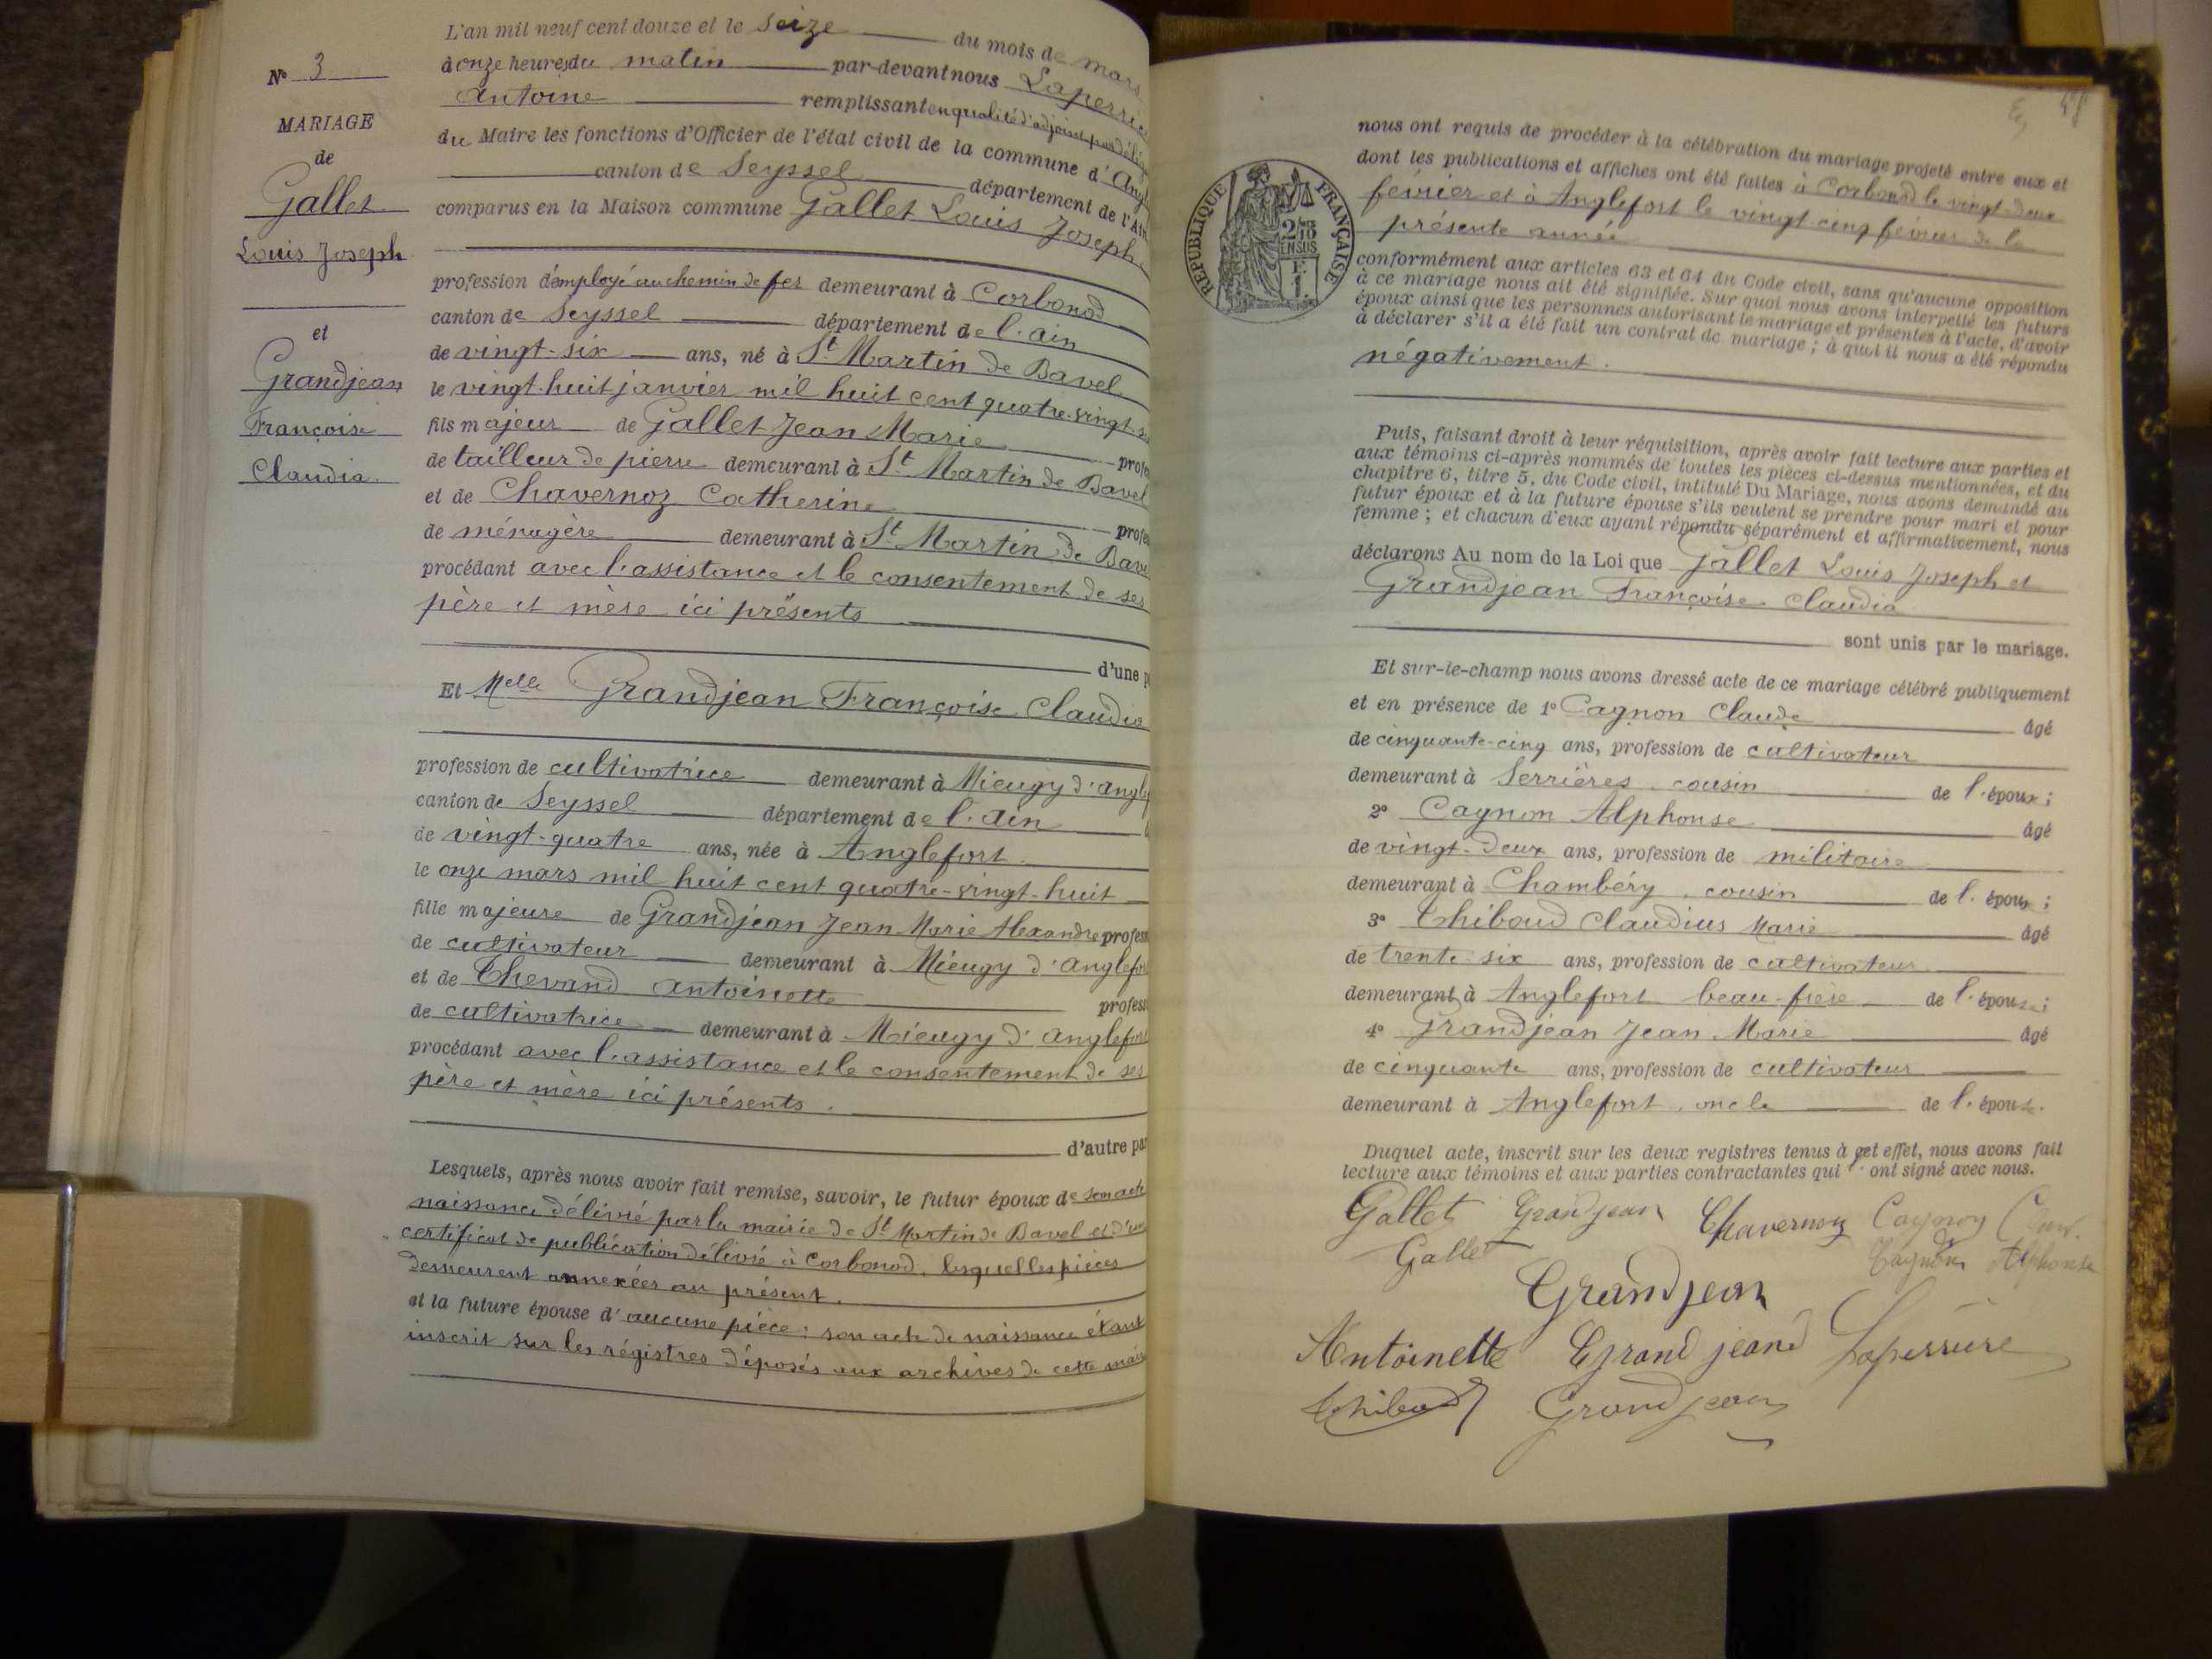 N° 3
MARIAGE
de
Gallet
Louis Joseph
et
Grandjean
Françoise
Claudia.
L'an mil neuf cent douze et le seize du mois de mars
à onze heures du matin par-devant nous
Antoine remplissant en qualité d'adjoint
du Maire les fonctions d'Officier de l'état civil de la commune d'
canton de Seyssel département de l'Ain
comparus en la Maison commune Gallet Louis Joseph
profession d'employé au chemin de fer demeurant à Corbonod
canton de Seyssel département de l'ain
de vingt-six ans, né à St Martin de Bavel
le vingt-huit janvier mil huit cent quatre-vingt
fils majeur de Gallet Jean Marie
de tailleur de pierre demeurant à St Martin de Bavel
et de Chavernoz Catherine
de ménagère demeurant à St Martin de
procédant avec l'assistance et le consentement de ses
père et mère ici présents
d'une
Et Melle Grandjean Françoise Claudia
profession de cultivatrice demeurant à Mieugy d'
canton de Seyssel département de l'Ain
de vingt-quatre ans, née à Anglefort
le onze mars mil huit cent quatre-vingt-huit
fille majeure de Grandjean Jean Marie Alexandre
de cultivateur demeurant à Mieugy d'
et de Thevand Antoinette
de cultivatrice demeurant à Mieugy d'
procédant avec l'assistance et le consentement de ses
père et mère ici présents.
d'autre
Lesquels, après nous avoir fait remise, savoir, le futur époux de son acte
naissance délivré par la mairie de St Martin de Bavel et d'un
certificat de publication délivré à Corbonod, lesquelles pièces
demeurent annexées au présent.
et la future épouse d'aucune pièce; son acte de naissance étant
inscrit sur les régistres déposés aux archives de cette
48
nous ont requis de procéder à la célébration du mariage projeté entre eux et
dont les publications et affiches ont été faites à Corbonod le vingt-deux
février et à Anglefort le vingt-cinq février de la
présente année
RÉPUBLIQUE FRANÇAISE
2/10 EN SUS
conformément aux articles 63 et 64 du Code civil, sans qu'aucune opposition
à ce mariage nous ait été signifiée. Sur quoi nous avons interpellé les futurs
époux ainsi que les personnes autorisant le mariage et présentes à l'acte, d'avoir
à déclarer s'il a été fait un contrat de mariage; à quoi il nous a été répondu
négativement.
Puis, faisant droit à leur réquisition, après avoir fait lecture aux parties et
aux témoins ci-après nommés de toutes les pièces ci-dessus mentionnées, et du
chapitre 6, titre 5, du Code civil, intitulé Du Mariage, nous avons demandé au
futur époux et à la future épouse s'ils veulent se prendre pour mari et pour
femme; et chacun d'eux ayant répondu séparément et affirmativement, nous
déclarons Au nom de la Loi que Gallet Louis Joseph et
Grandjean Françoise Claudia
sont unis par le mariage.
Et sur-le-champ nous avons dressé acte de ce mariage célébré publiquement
et en présence de 1° Cagnon Claude âgé
de cinquante-cinq ans, profession de cultivateur
demeurant à Serrières, cousin de l'époux;
2° Cagnon Alphonse âgé
de vingt-deux ans, profession de militaire
demeurant à Chambéry, cousin de l'époux;
3° Thibaud Claudius Marie âgé
de trente-six ans, profession de cultivateur
demeurant à Anglefort beau-frère de l'épouse;
4° Grandjean Jean Marie âgé
de cinquante ans, profession de cultivateur
demeurant à Anglefort, oncle de l'épouse.
Duquel acte, inscrit sur les deux registres tenus à cet effet, nous avons fait
lecture aux témoins et aux parties contractantes qui ont signé avec nous.
Gallet Grandjean Chavernoz Cagnon
Gallet Cagnon Alphonse
Grandjean
Antoinette Grandjean Laperrière
Thibaud Grandjean